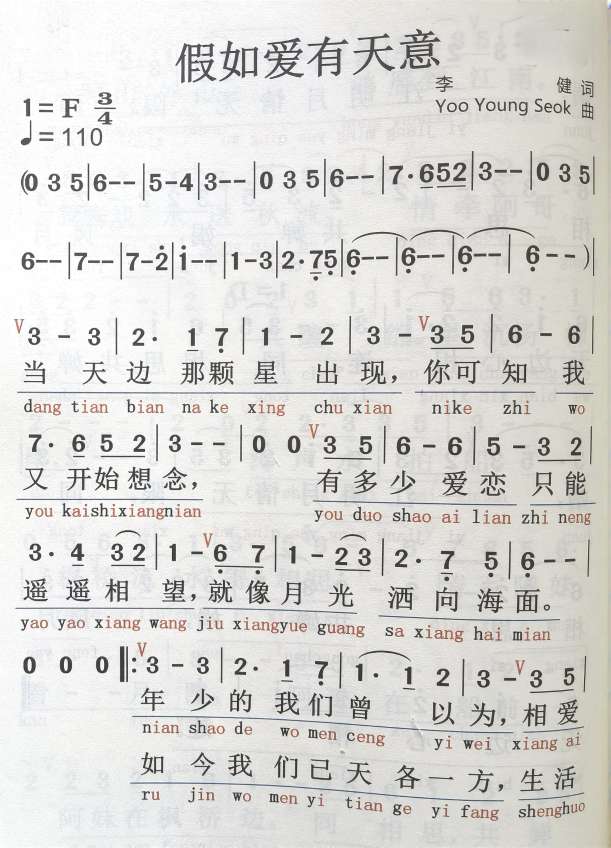 假如爱有天意
李 健 词
1=F 3/4
Yoo Young Seok 曲
♩=110
(0 3 5|6--|5-4|3--|0 3 5|6--|7·652|3--|0 3 5
6--|7--|7-2̇|1̇--|1-3|2·7̣5̣|6̣--|6̣--|6̣--|6̣--)|
V3-3|2·1 7̣|1-2|3-V3 5|6-6|
当 天边 那颗星 出现,你可知 我
dang tian bian na ke xing chu xian nike zhi wo
7·6 5 2|3--|0 0 V3 5|6-6|5-3 2|
又 开始想念, 有多少 爱恋 只能
you kaishixiangnian you duo shao ai lian zhi neng
3·4 3 2|1-V6̣ 7̣|1-2 3|2·7̣ 5|6̣--|
遥遥相 望,就像月 光 洒向海面。
yao yao xiang wang jiu xiangyue guang sa xiang hai mian
0 0 0‖:V3-3|2·1 7̣|1·1 2|3-V3 5|
年 少的 我们曾 以为,相爱
nian shao de wo men ceng yi wei xiang ai
如 今我 们已天 各一方,生活
ru jin wo men yi tian ge yi fang shenghuo